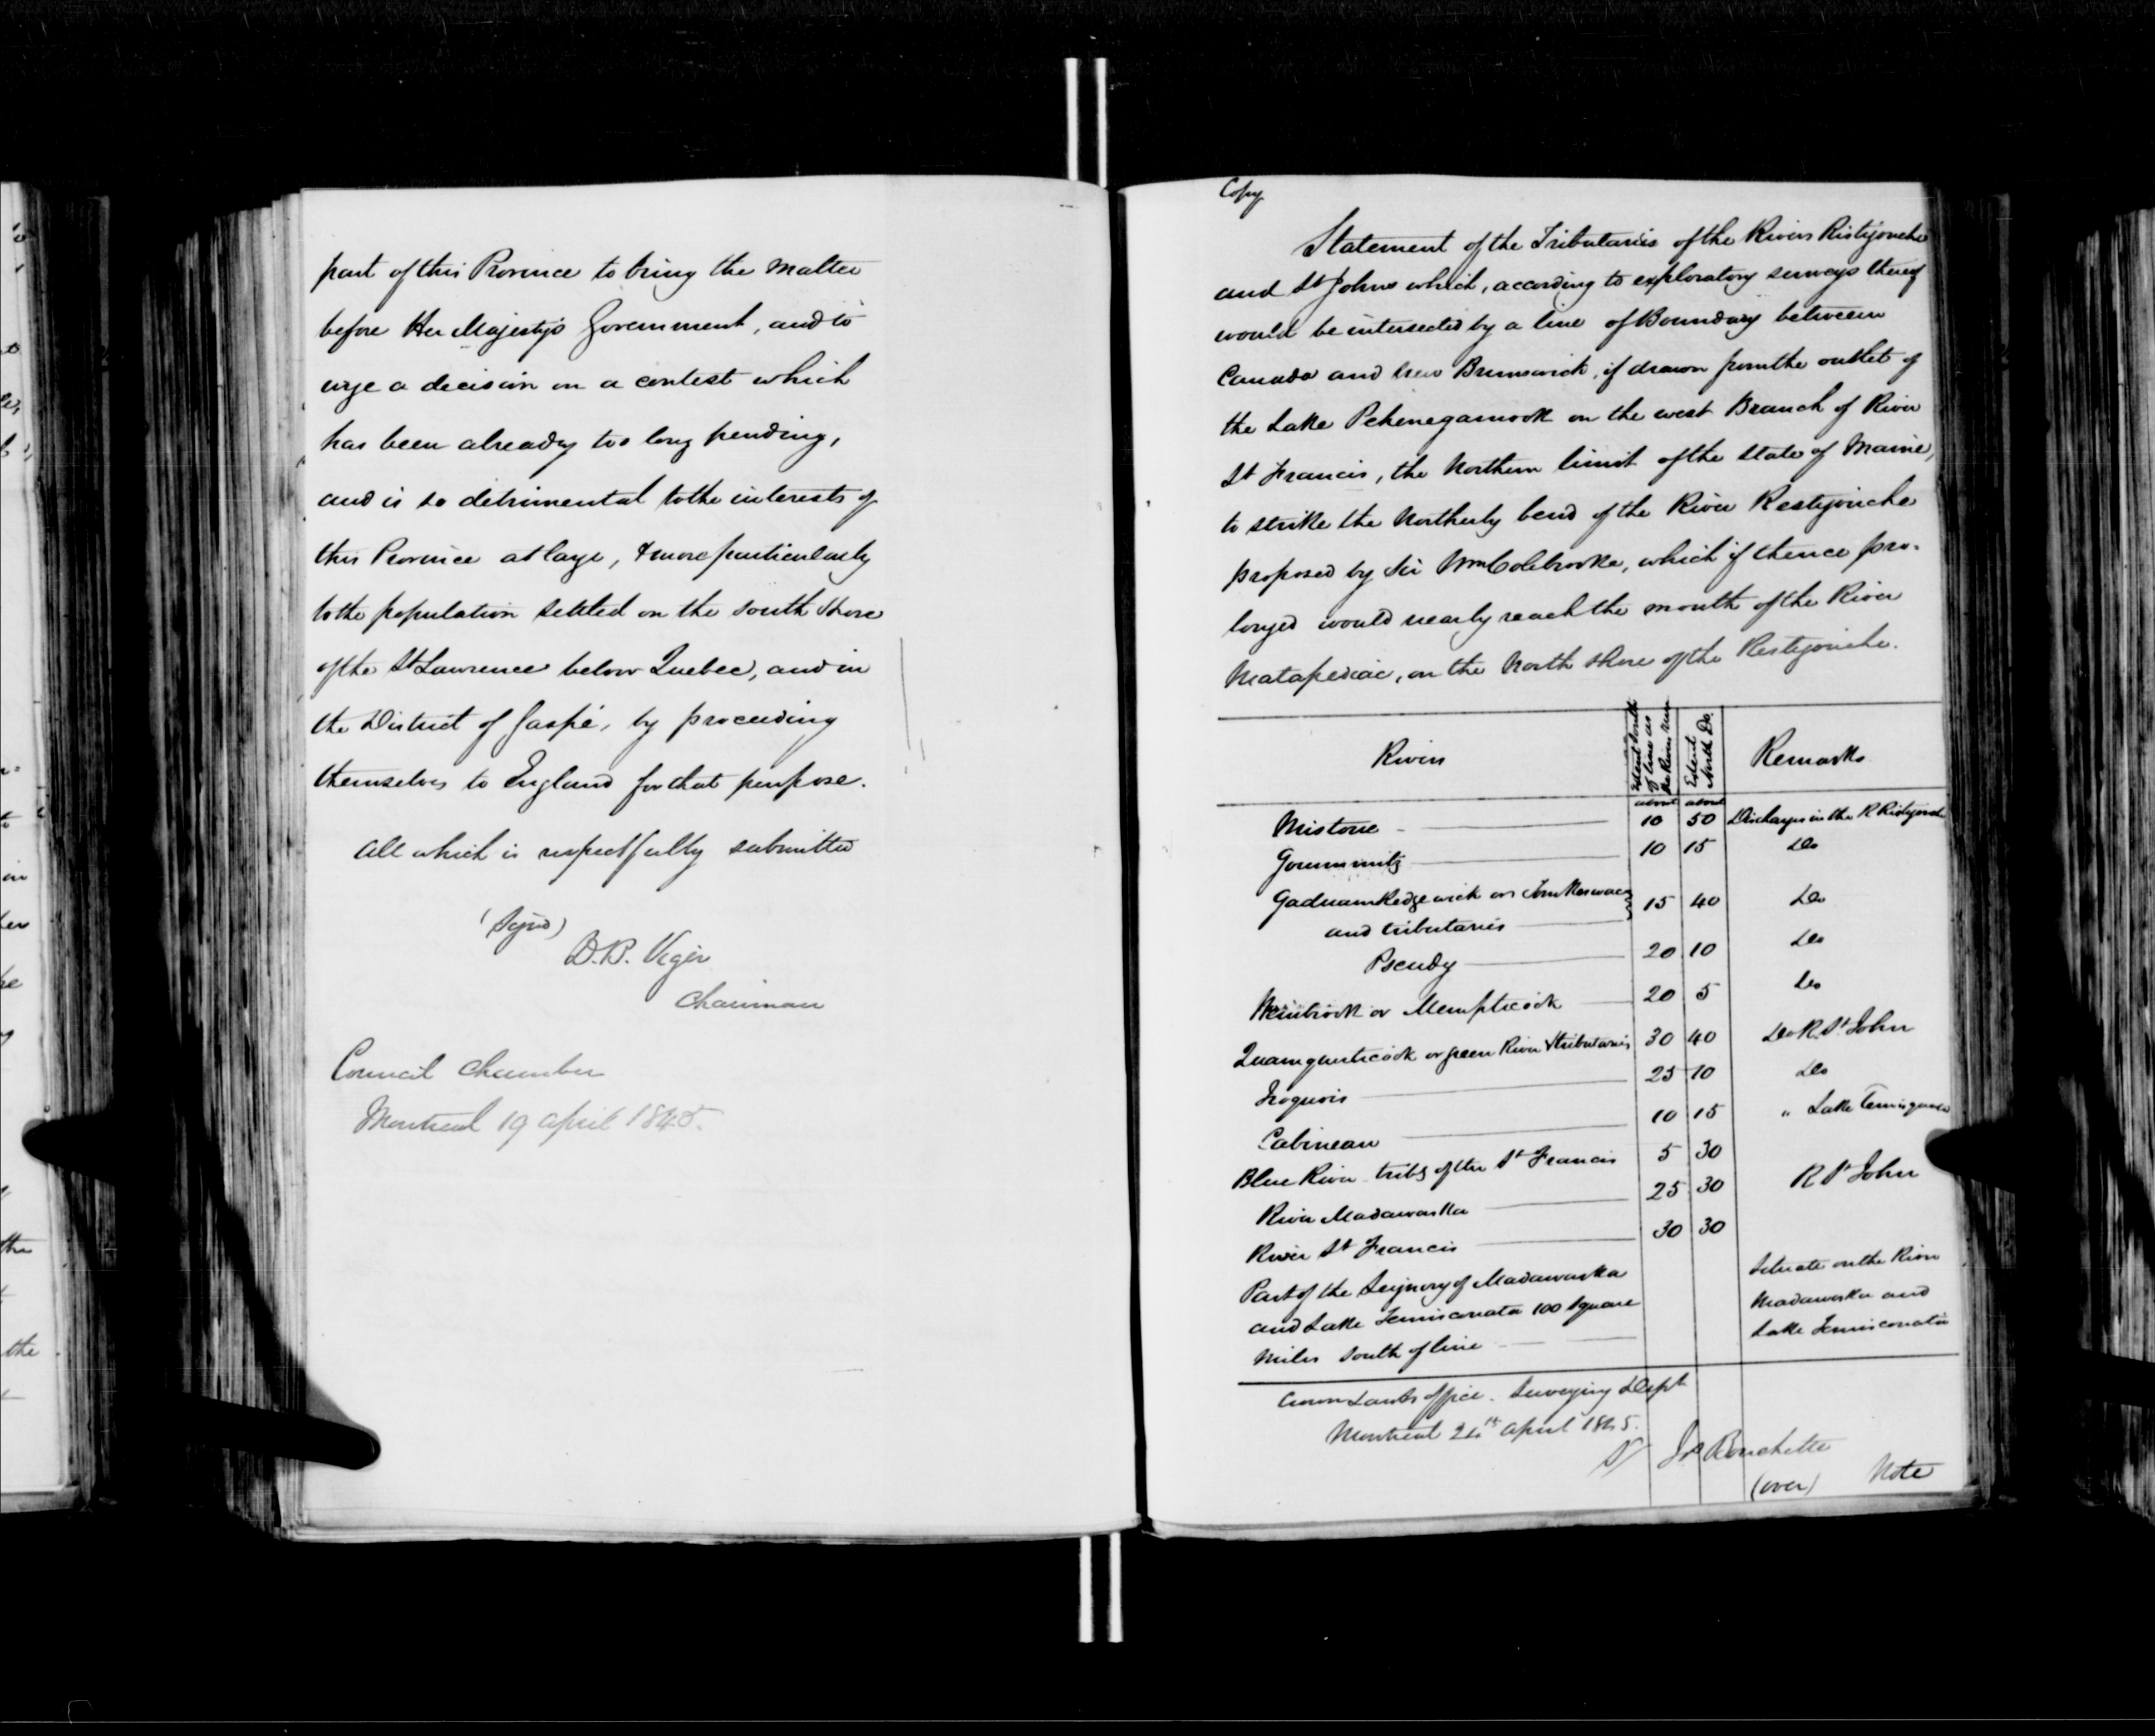 part of this Province to bring the matter
before Her Majesty's Government, and to
urge a decision on a contest which
has been already too long pending,
and is so detrimental to the interests of
this Province at large, & more particularly
to the population settled on the south shore
of the St Lawrence below Quebec, and in
the District of Gaspé, by proceeding
themselves to England for that purpose.
All which is respectfully submitted
(Signd)
D.B. Viger
Chairman
Council Chamber
Montreal 19 April 1845.
Copy
Statement of the Tributaries of the Rivers Ristigouche
and St Johns which, according to exploratory surveys thereof
would be intersected by a line of Boundary between
Canada and New Brunswick, if drawn from the outlet of
the Lake Pehenegamook on the west Branch of River
St Francis, the Northern limit of the State of Maine,
to strike the Northerly bend of the River Restigouche
proposed by Sir Wm Colebrooke, which if thence pro-
longed would nearly reach the mouth of the River
Matapediac, on the North shore of the Restigouche.
Rivers Extent South of line as the River runs Extent North Do. Remarks
about about
Mistoue 10 50 Discharges in the R Ristigouche
Goummitz 10 15 Do
Gaduamkedgewick or Tom Kedgwick
and tributaries 15 40 Do
Pseudy 20 10 Do
or Mempticook 20 5 Do
Quamquerticook or Green River & tributaries 30 40 Do R. St John
Iroquois 25 10 Do
Cabineau 10 15 " Lake Temisquata
Blue River tribs of the St Francis 5 30
River Madawaska 25 30 R St John
River St Francis 30 30
Part of the Seignory of Madawaska
and Lake Temisconata 100 square
miles south of line
Situate on the River
Madawaska and
Lake Temisconata
Crown Lands Office. Surveying Dept
Montreal 24th April 1845.
S/ Js Bouchette
(over) Note